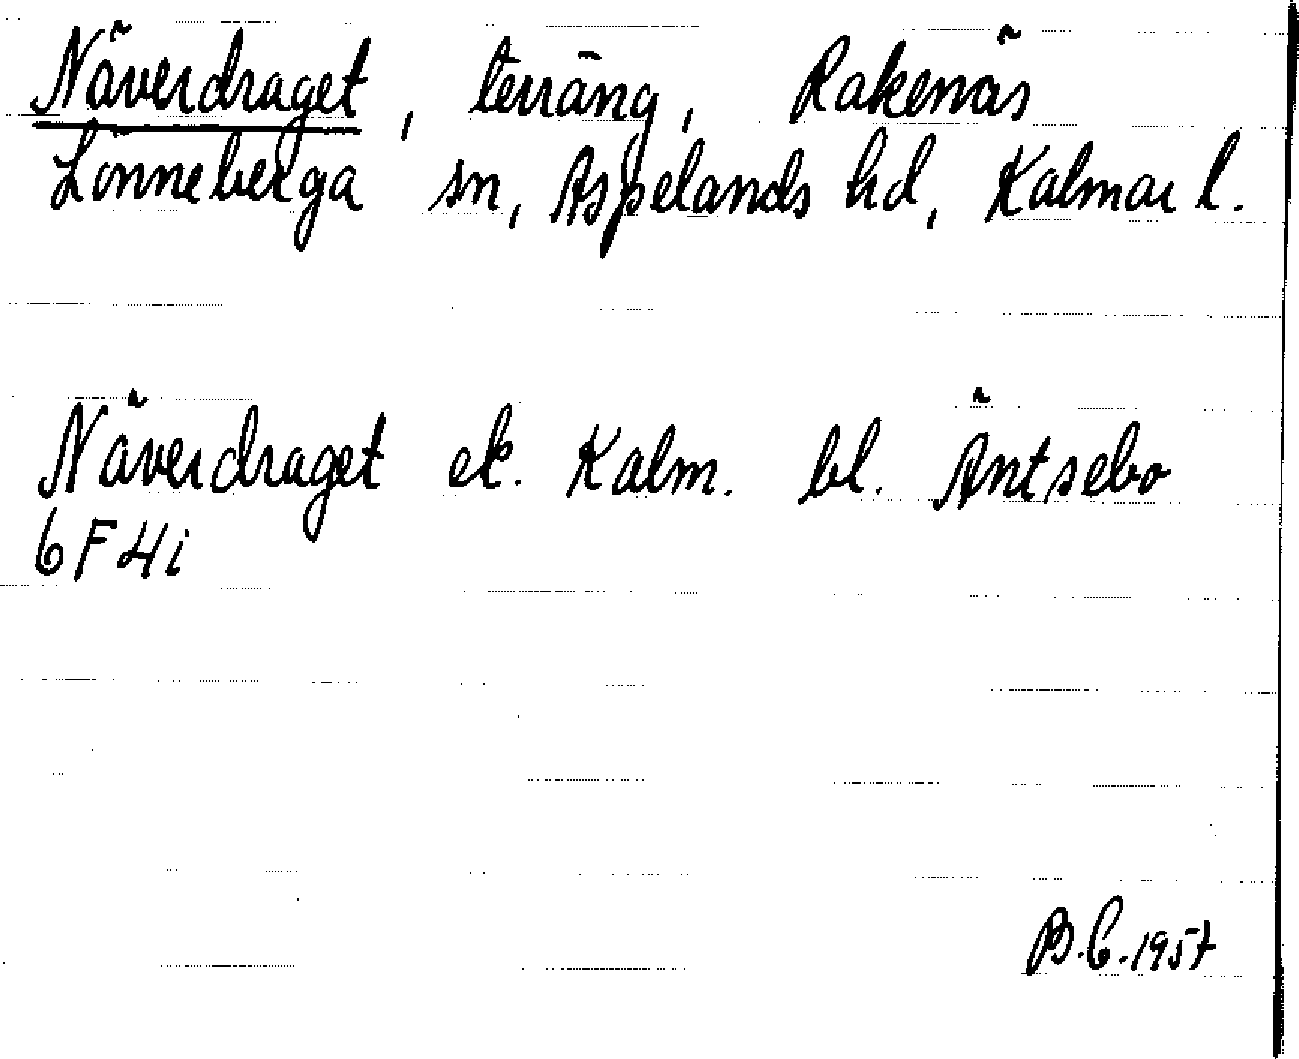 Näverdraget, terräng, Rakenäs
Lönneberga sn, Aspelands hd, Kalmar l.
Näverdraget ek. Kalm. bl. Äntsebo
6F4i
B.C. 1957